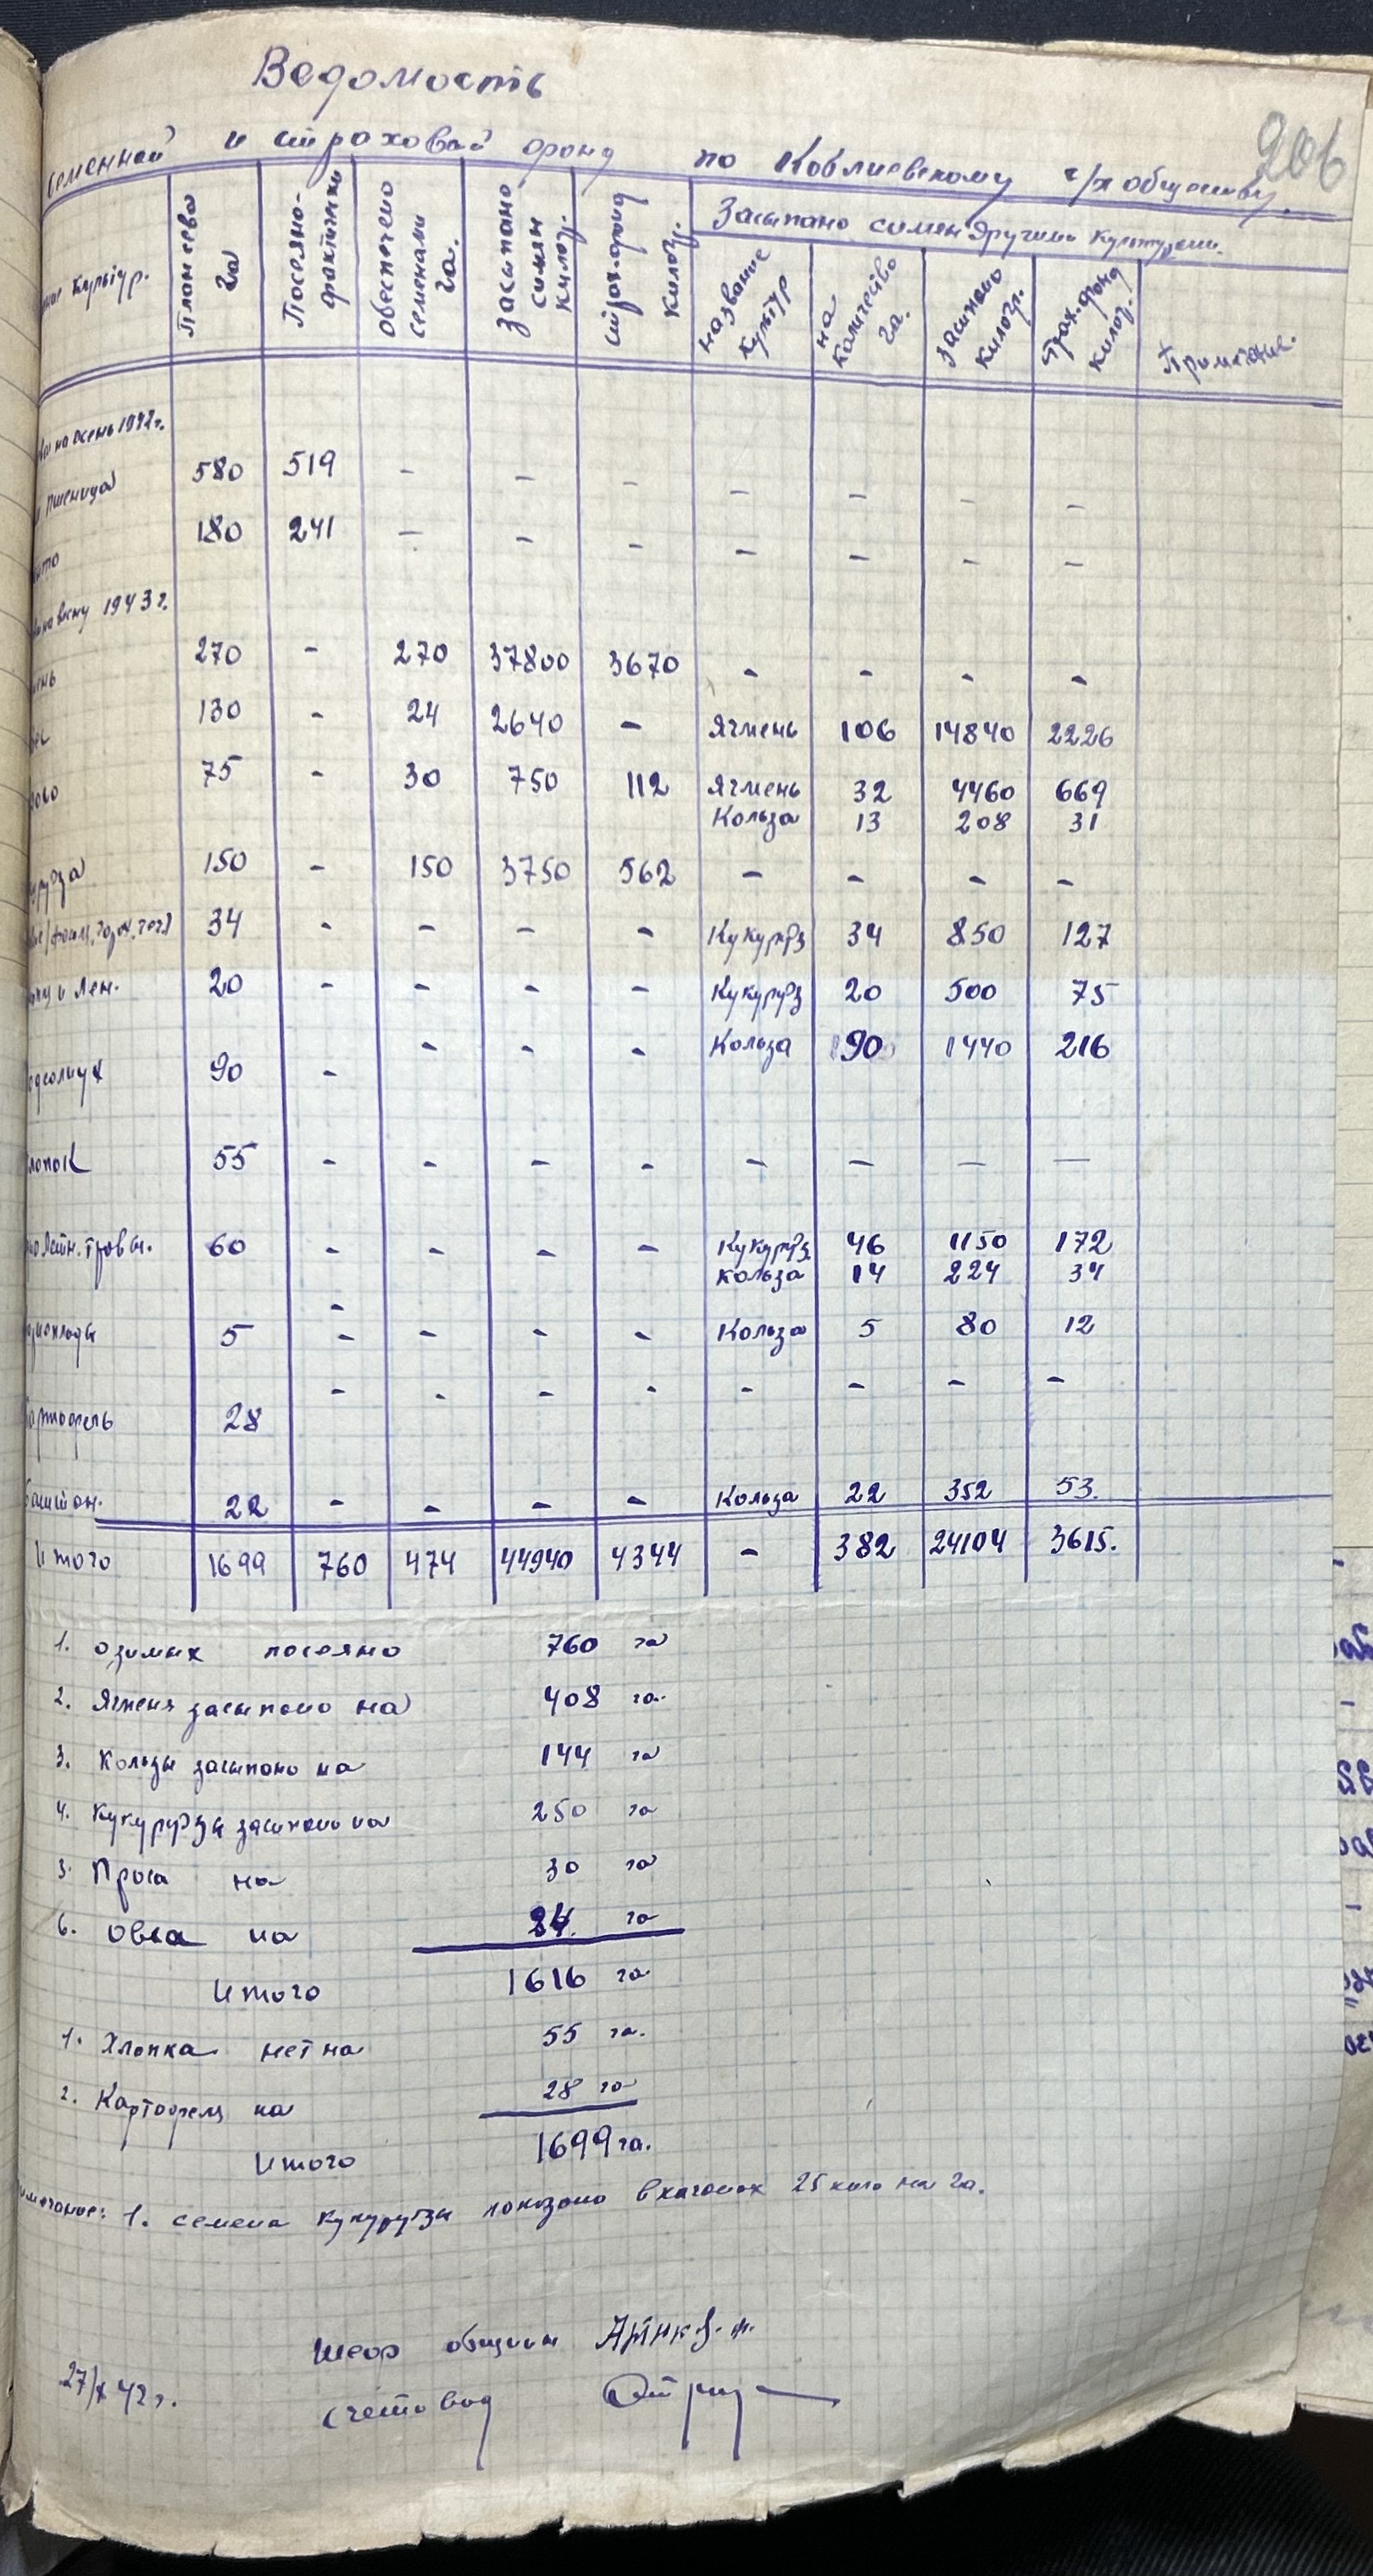 Ведомость
206
семенной и страховой фонд по Коблиевскому с/х обществу.
культур.
План сева га
Посеяно фактически
обеспечено семенами га.
Засыпано симян килогр.
страх.фонд килогр.
Засыпано симян другими культурами.
название культур
на количество га.
засыпано килогр.
страх.фонд килогр.
Примечание.
на осень 1942 г.
пшеница 580 519 - - - - - - -
180 241 - - - - - - -
на весну 1943 г.
270 - 270 37800 3670 - - - -
130 - 24 2640 - Ячмень 106 14840 2226
75 - 30 750 112 Ячмень 32 4460 669
Кольза 13 208 31
150 - 150 3750 562 - - - -
34 - - - - Кукурузы 34 850 127
и лен. 20 - - - - Кукурузы 20 500 75
90 - - - - Кольза 90 1440 216
55 - - - - - - - -
травы. 60 - - - - Кукурузы 46 1150 172
кольза 14 224 34
-
5 - - - - Кольза 5 80 12
28 - - - - - - - -
22 - - - - Кольза 22 352 53.
Итого 1699 760 474 44940 4344 - 382 24104 3615.
1. озимых посеяно 760 га
2. Ячменя засыпано на 408 га.
3. Кользы засыпано на 144 га
4. Кукурузы засыпано на 250 га
5. Проса на 30 га
6. Овса на 24. га
Итого 1616 га
1. Хлопка нет на 55 га.
2. Картофеля на 28 га
Итого 1699 га.
1. семена кукурузы показано в качанах 25 кило на га.
Шеф общины
27/X 42 г.
счетовод